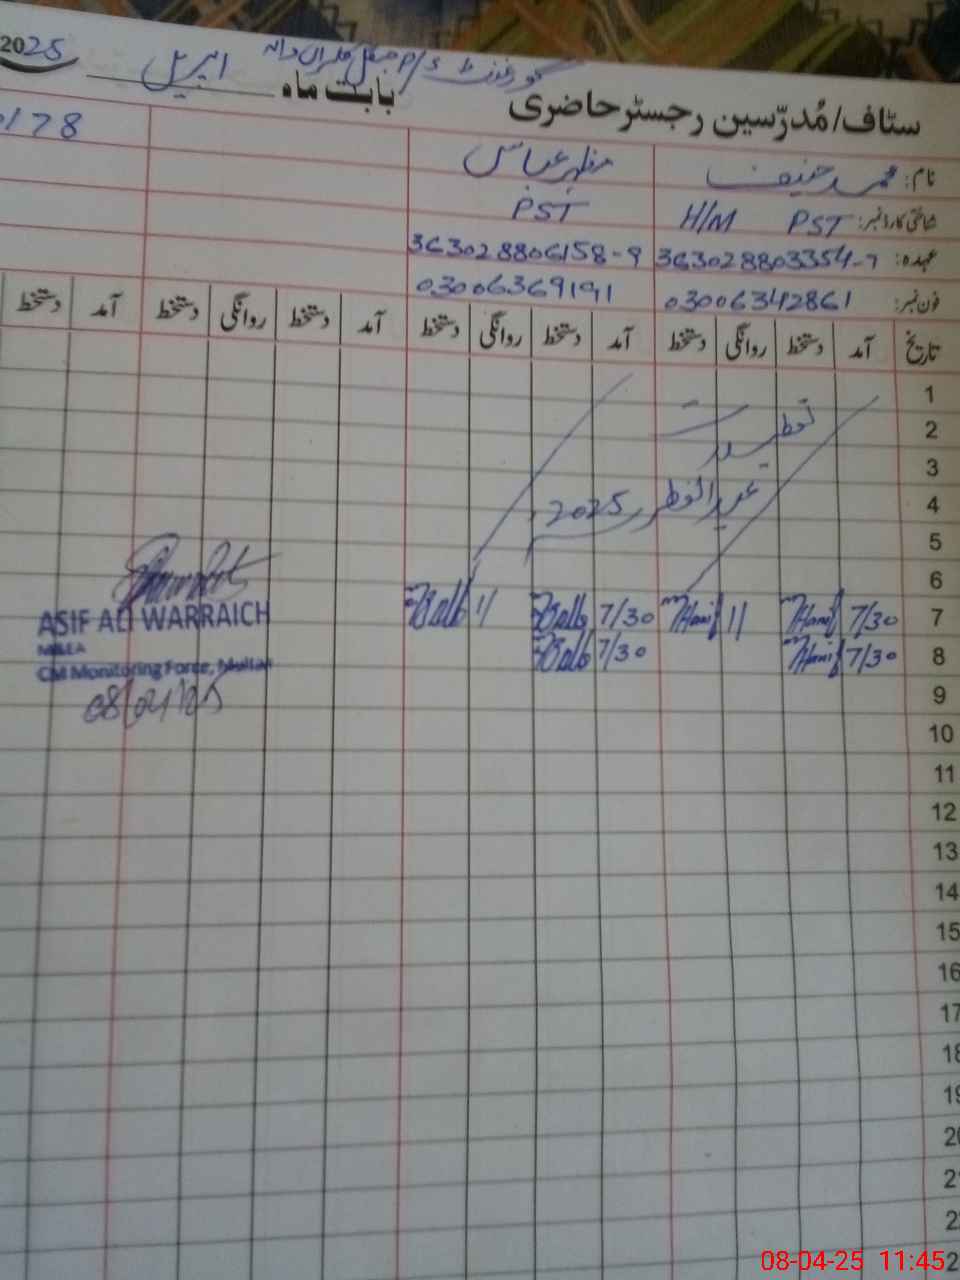 2025 اپریل بابت ماہ سٹاف/مُدرّسین رجسٹر حاضری
گورنمنٹ P/S
178
نام: محمد حنیف مظہر عباس
شناختی کارڈ نمبر: PST H/M PST
عہدہ: 363028803354-7 363028806158-9
فون نمبر: 03006342861 03006369191
تاریخ آمد دستخط روانگی دستخط آمد دستخط روانگی دستخط آمد دستخط روانگی دستخط آمد دستخط
1
2
تعطیلات
3
4
عید الفطر 2025
5
6
7 7/30 Hanif 11 Hanif 7/30 11
8 7/30 Hanif 7/30
ASIF ALI WARRAICH
MEA
CM Monitoring Force, Multan
08/04/25
9
10
11
12
13
14
15
16
17
18
19
20
21
22
08-04-25 11:45